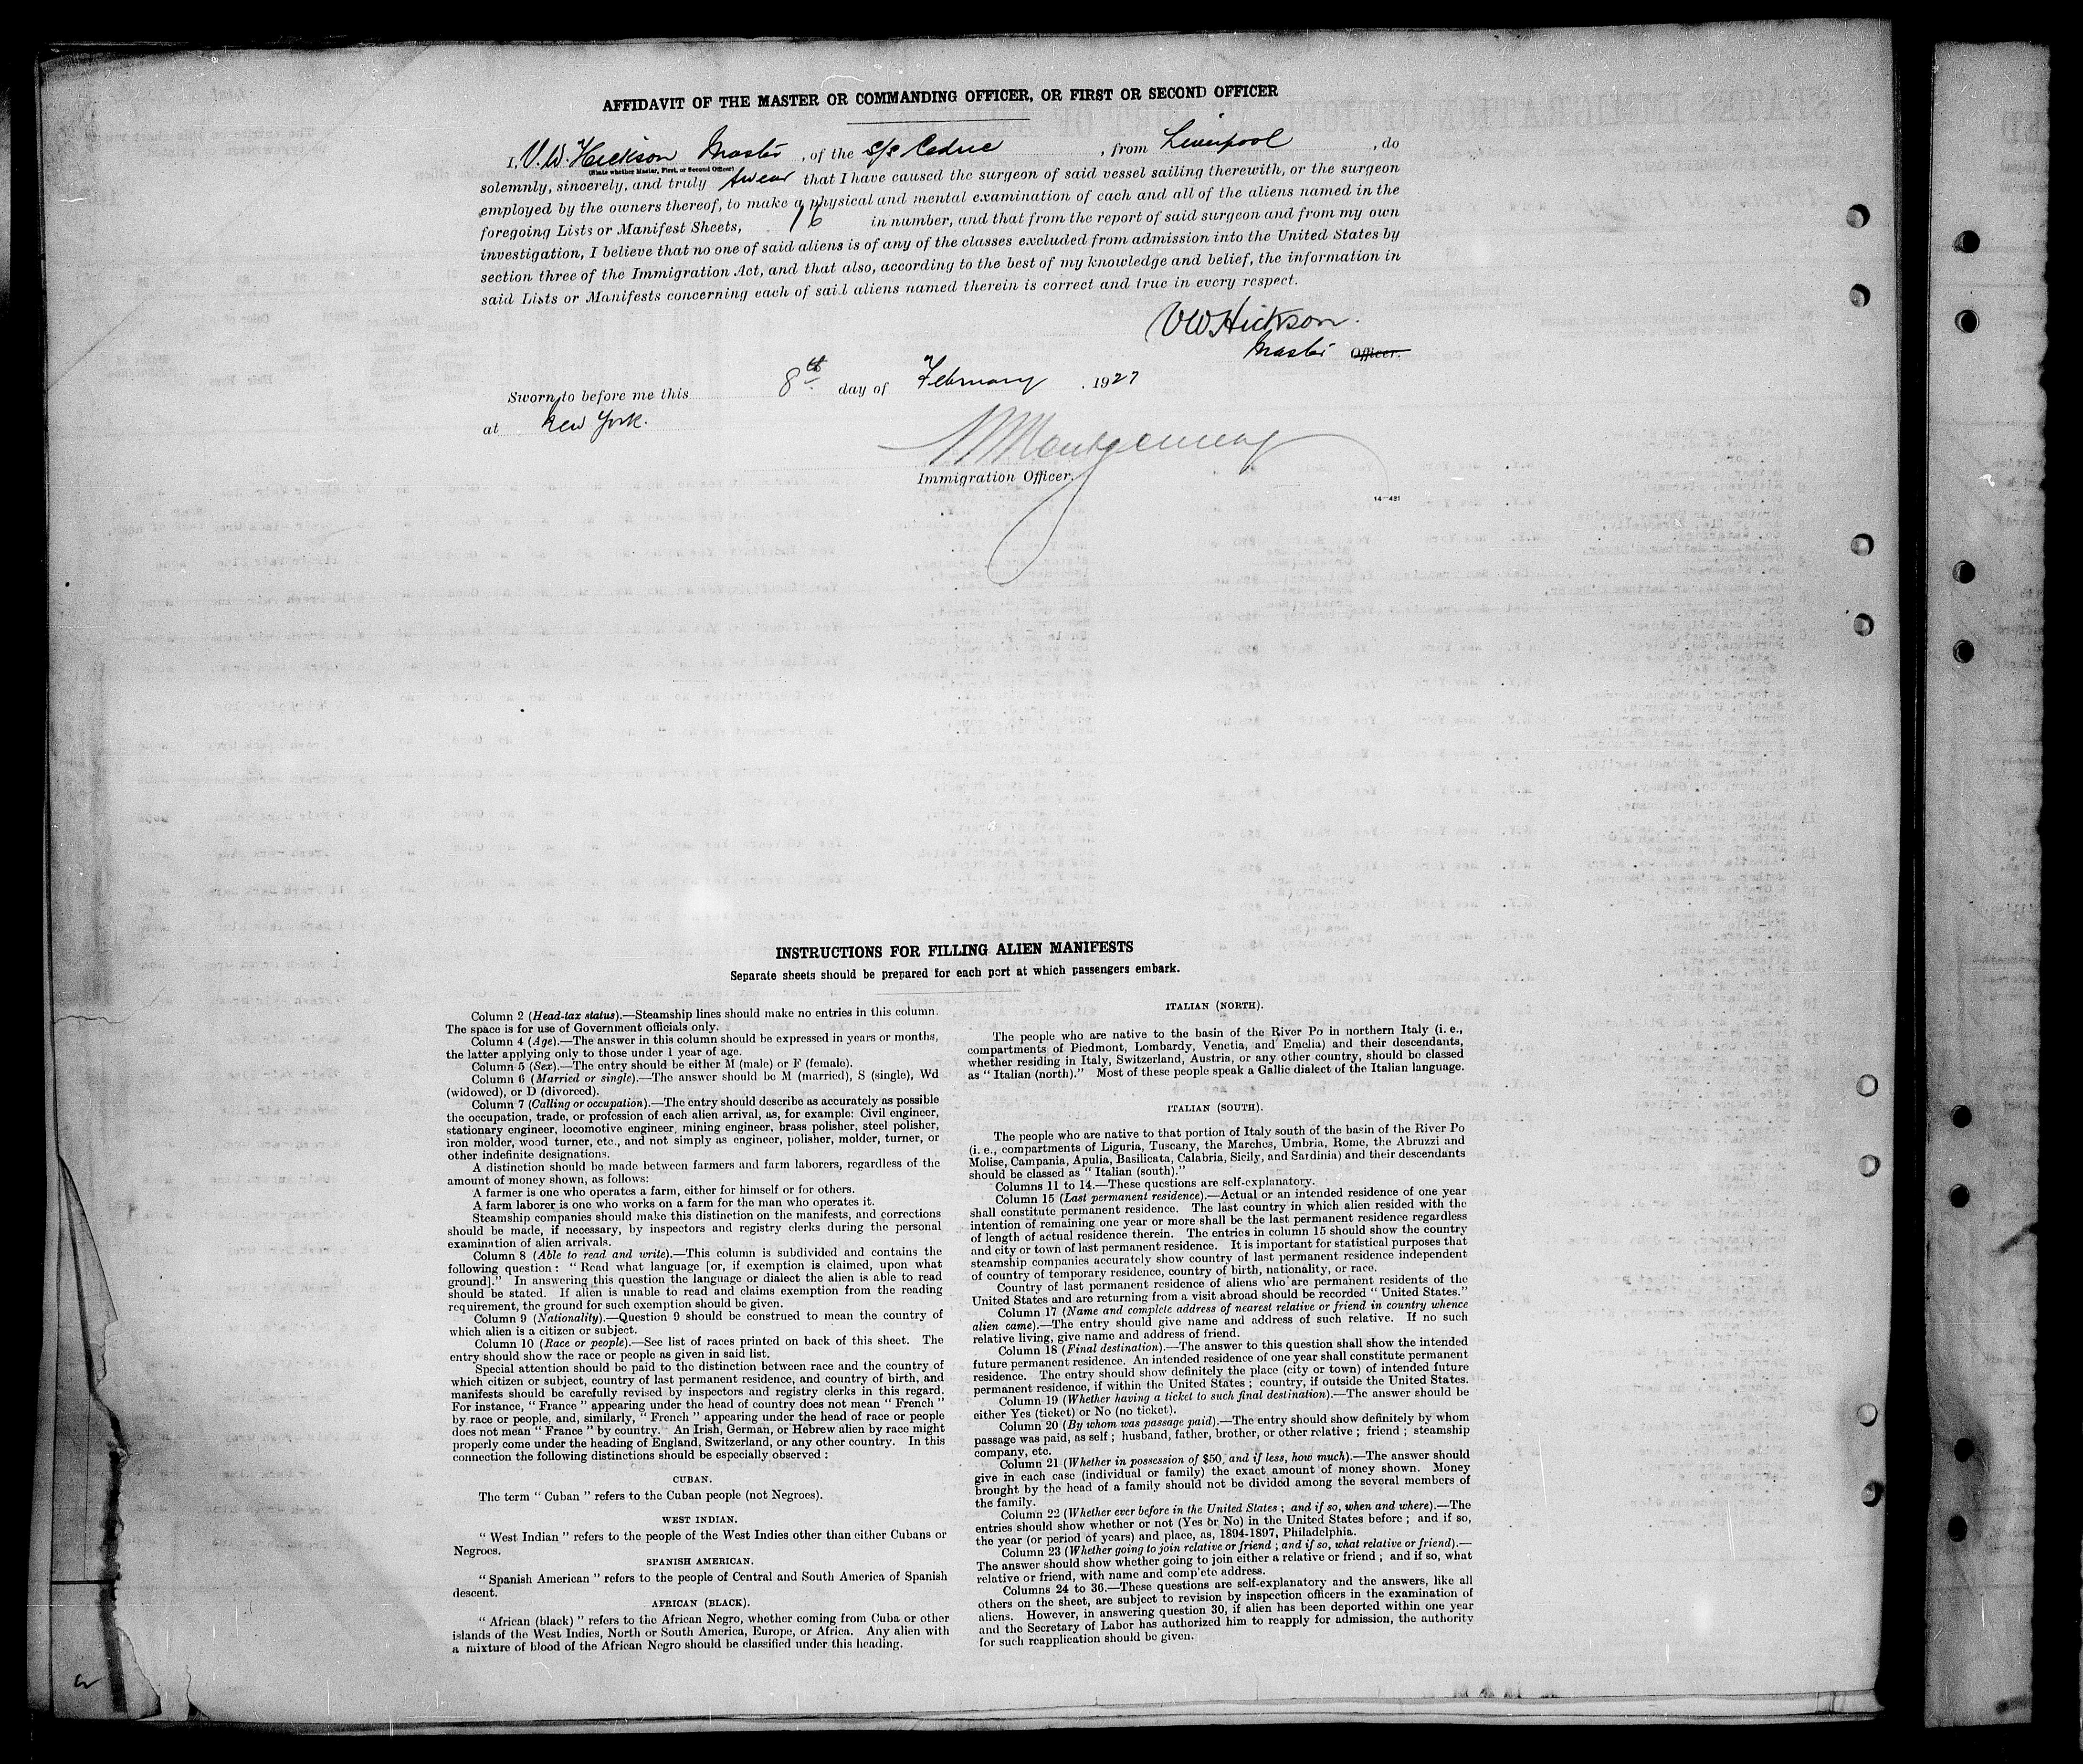 AFFIDAVIT OF THE MASTER OR COMMANDING OFFICER, OR FIRST OR SECOND OFFICER
I, V. W. Hickson Master, of the S/S Cedric, from Liverpool, do
(State whether Master, First, or Second Officer)
solemnly, sincerely, and truly swear that I have caused the surgeon of said vessel sailing therewith, or the surgeon
employed by the owners thereof, to make a physical and mental examination of each and all of the aliens named in the
foregoing Lists or Manifest Sheets, 96 in number, and that from the report of said surgeon and from my own
investigation, I believe that no one of said aliens is of any of the classes excluded from admission into the United States by
section three of the Immigration Act, and that also, according to the best of my knowledge and belief, the information in
said Lists or Manifests concerning each of said aliens named therein is correct and true in every respect.
VW Hickson.
Master Officer.
Sworn to before me this 8th day of February, 1927
at New York.
Montgomery
Immigration Officer.
14—421
INSTRUCTIONS FOR FILLING ALIEN MANIFESTS
Separate sheets should be prepared for each port at which passengers embark.
Column 2 (Head-tax status).—Steamship lines should make no entries in this column.
The space is for use of Government officials only.
Column 4 (Age).—The answer in this column should be expressed in years or months,
the latter applying only to those under 1 year of age.
Column 5 (Sex).—The entry should be either M (male) or F (female).
Column 6 (Married or single).—The answer should be M (married), S (single), Wd
(widowed), or D (divorced).
Column 7 (Calling or occupation).—The entry should describe as accurately as possible
the occupation, trade, or profession of each alien arrival, as, for example: Civil engineer,
stationary engineer, locomotive engineer, mining engineer, brass polisher, steel polisher,
iron molder, wood turner, etc., and not simply as engineer, polisher, molder, turner, or
other indefinite designations.
A distinction should be made between farmers and farm laborers, regardless of the
amount of money shown, as follows:
A farmer is one who operates a farm, either for himself or for others.
A farm laborer is one who works on a farm for the man who operates it.
Steamship companies should make this distinction on the manifests, and corrections
should be made, if necessary, by inspectors and registry clerks during the personal
examination of alien arrivals.
Column 8 (Able to read and write).—This column is subdivided and contains the
following question: " Read what language [or, if exemption is claimed, upon what
ground]." In answering this question the language or dialect the alien is able to read
should be stated. If alien is unable to read and claims exemption from the reading
requirement, the ground for such exemption should be given.
Column 9 (Nationality).—Question 9 should be construed to mean the country of
which alien is a citizen or subject.
Column 10 (Race or people).—See list of races printed on back of this sheet. The
entry should show the race or people as given in said list.
Special attention should be paid to the distinction between race and the country of
which citizen or subject, country of last permanent residence, and country of birth, and
manifests should be carefully revised by inspectors and registry clerks in this regard.
For instance, " France " appearing under the head of country does not mean " French "
by race or people, and, similarly, " French " appearing under the head of race or people
does not mean " France " by country. An Irish, German, or Hebrew alien by race might
properly come under the heading of England, Switzerland, or any other country. In this
connection the following distinctions should be especially observed:
CUBAN.
The term " Cuban " refers to the Cuban people (not Negroes).
WEST INDIAN.
" West Indian " refers to the people of the West Indies other than either Cubans or
Negroes.
SPANISH AMERICAN.
" Spanish American " refers to the people of Central and South America of Spanish
descent.
AFRICAN (BLACK).
" African (black) " refers to the African Negro, whether coming from Cuba or other
islands of the West Indies, North or South America, Europe, or Africa. Any alien with
a mixture of blood of the African Negro should be classified under this heading.
ITALIAN (NORTH).
The people who are native to the basin of the River Po in northern Italy (i. e.,
compartments of Piedmont, Lombardy, Venetia, and Emelia) and their descendants,
whether residing in Italy, Switzerland, Austria, or any other country, should be classed
as " Italian (north)." Most of these people speak a Gallic dialect of the Italian language.
ITALIAN (SOUTH).
The people who are native to that portion of Italy south of the basin of the River Po
(i. e., compartments of Liguria, Tuscany, the Marches, Umbria, Rome, the Abruzzi and
Molise, Campania, Apulia, Basilicata, Calabria, Sicily, and Sardinia) and their descendants
should be classed as " Italian (south)."
Columns 11 to 14.—These questions are self-explanatory.
Column 15 (Last permanent residence).—Actual or an intended residence of one year
shall constitute permanent residence. The last country in which alien resided with the
intention of remaining one year or more shall be the last permanent residence regardless
of length of actual residence therein. The entries in column 15 should show the country
and city or town of last permanent residence. It is important for statistical purposes that
steamship companies accurately show country of last permanent residence independent
of country of temporary residence, country of birth, nationality, or race.
Country of last permanent residence of aliens who are permanent residents of the
United States and are returning from a visit abroad should be recorded " United States."
Column 17 (Name and complete address of nearest relative or friend in country whence
alien came).—The entry should give name and address of such relative. If no such
relative living, give name and address of friend.
Column 18 (Final destination).—The answer to this question shall show the intended
future permanent residence. An intended residence of one year shall constitute permanent
residence. The entry should show definitely the place (city or town) of intended future
permanent residence, if within the United States; country, if outside the United States.
Column 19 (Whether having a ticket to such final destination).—The answer should be
either Yes (ticket) or No (no ticket).
Column 20 (By whom was passage paid).—The entry should show definitely by whom
passage was paid, as self; husband, father, brother, or other relative; friend; steamship
company, etc.
Column 21 (Whether in possession of $50, and if less, how much).—The answer should
give in each case (individual or family) the exact amount of money shown. Money
brought by the head of a family should not be divided among the several members of
the family.
Column 22 (Whether ever before in the United States; and if so, when and where).—The
entries should show whether or not (Yes or No) in the United States before; and if so,
the year (or period of years) and place, as, 1894-1897, Philadelphia.
Column 23 (Whether going to join relative or friend; and if so, what relative or friend).—
The answer should show whether going to join either a relative or friend; and if so, what
relative or friend, with name and complete address.
Columns 24 to 36.—These questions are self-explanatory and the answers, like all
others on the sheet, are subject to revision by inspection officers in the examination of
aliens. However, in answering question 30, if alien has been deported within one year
and the Secretary of Labor has authorized him to reapply for admission, the authority
for such reapplication should be given.